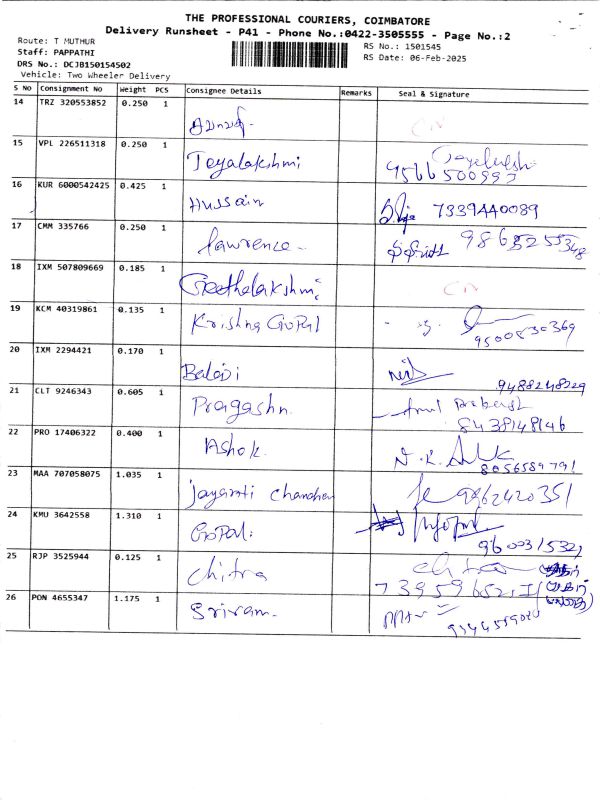 THE PROFESSIONAL COURIERS, COIMBATORE
Delivery Runsheet - P41 - Phone No.:0422-3505555 - Page No.:2
Route: T MUTHUR
RS No.: 1501545
Staff: PAPPATHI
RS Date: 06-Feb-2025
DRS No.: DCJB150154502
Vehicle: Two Wheeler Delivery
S No Consignment No Weight PCS Consignee Details Remarks Seal & Signature
14 TRZ 320553852 0.250 1
15 VPL 226511318 0.250 1
Jeyalakshmi
16 KUR 6000542425 0.425 1
Hussain 7339440089
17 CMM 335766 0.250 1
Lawrence
18 IXM 507809669 0.185 1
Geethalakshmi
19 KCM 40319861 0.135 1
Krishna Gopal
9500830369
20 IXM 2294421 0.170 1
Balaji
9488248929
21 CLT 9246343 0.605 1
Pragash
8438148146
22 PRO 17406322 0.400 1
Ashok
8056589791
23 MAA 707058075 1.035 1
9962420351
24 KMU 3642558 1.310 1
Gopal
9600315327
25 RJP 3525944 0.125 1
Chitra
26 PON 4655347 1.175 1
Sriram